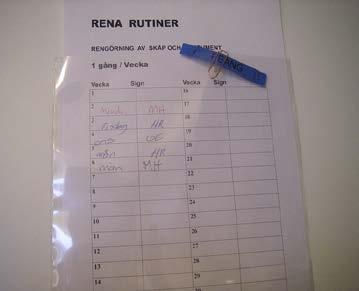 RENA RUTINER
RENGÖRNING AV SKÅP OCH
1 gång / Vecka
Vecka Sign Vecka Sign
1 16
2 MH 17
3 Fredag HR 18
4 ons 19
5 mån HR 20
6 mån MH 21
7 22
8 23
9 24
10 25
11 26
12 27
13 28
14 29